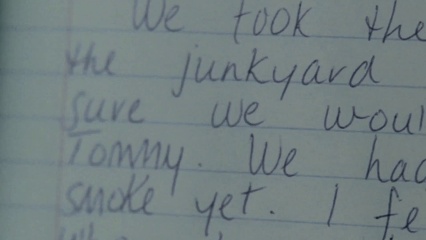 We took the
the junkyard
sure we woul
Tommy. We had
smoke yet. I fe